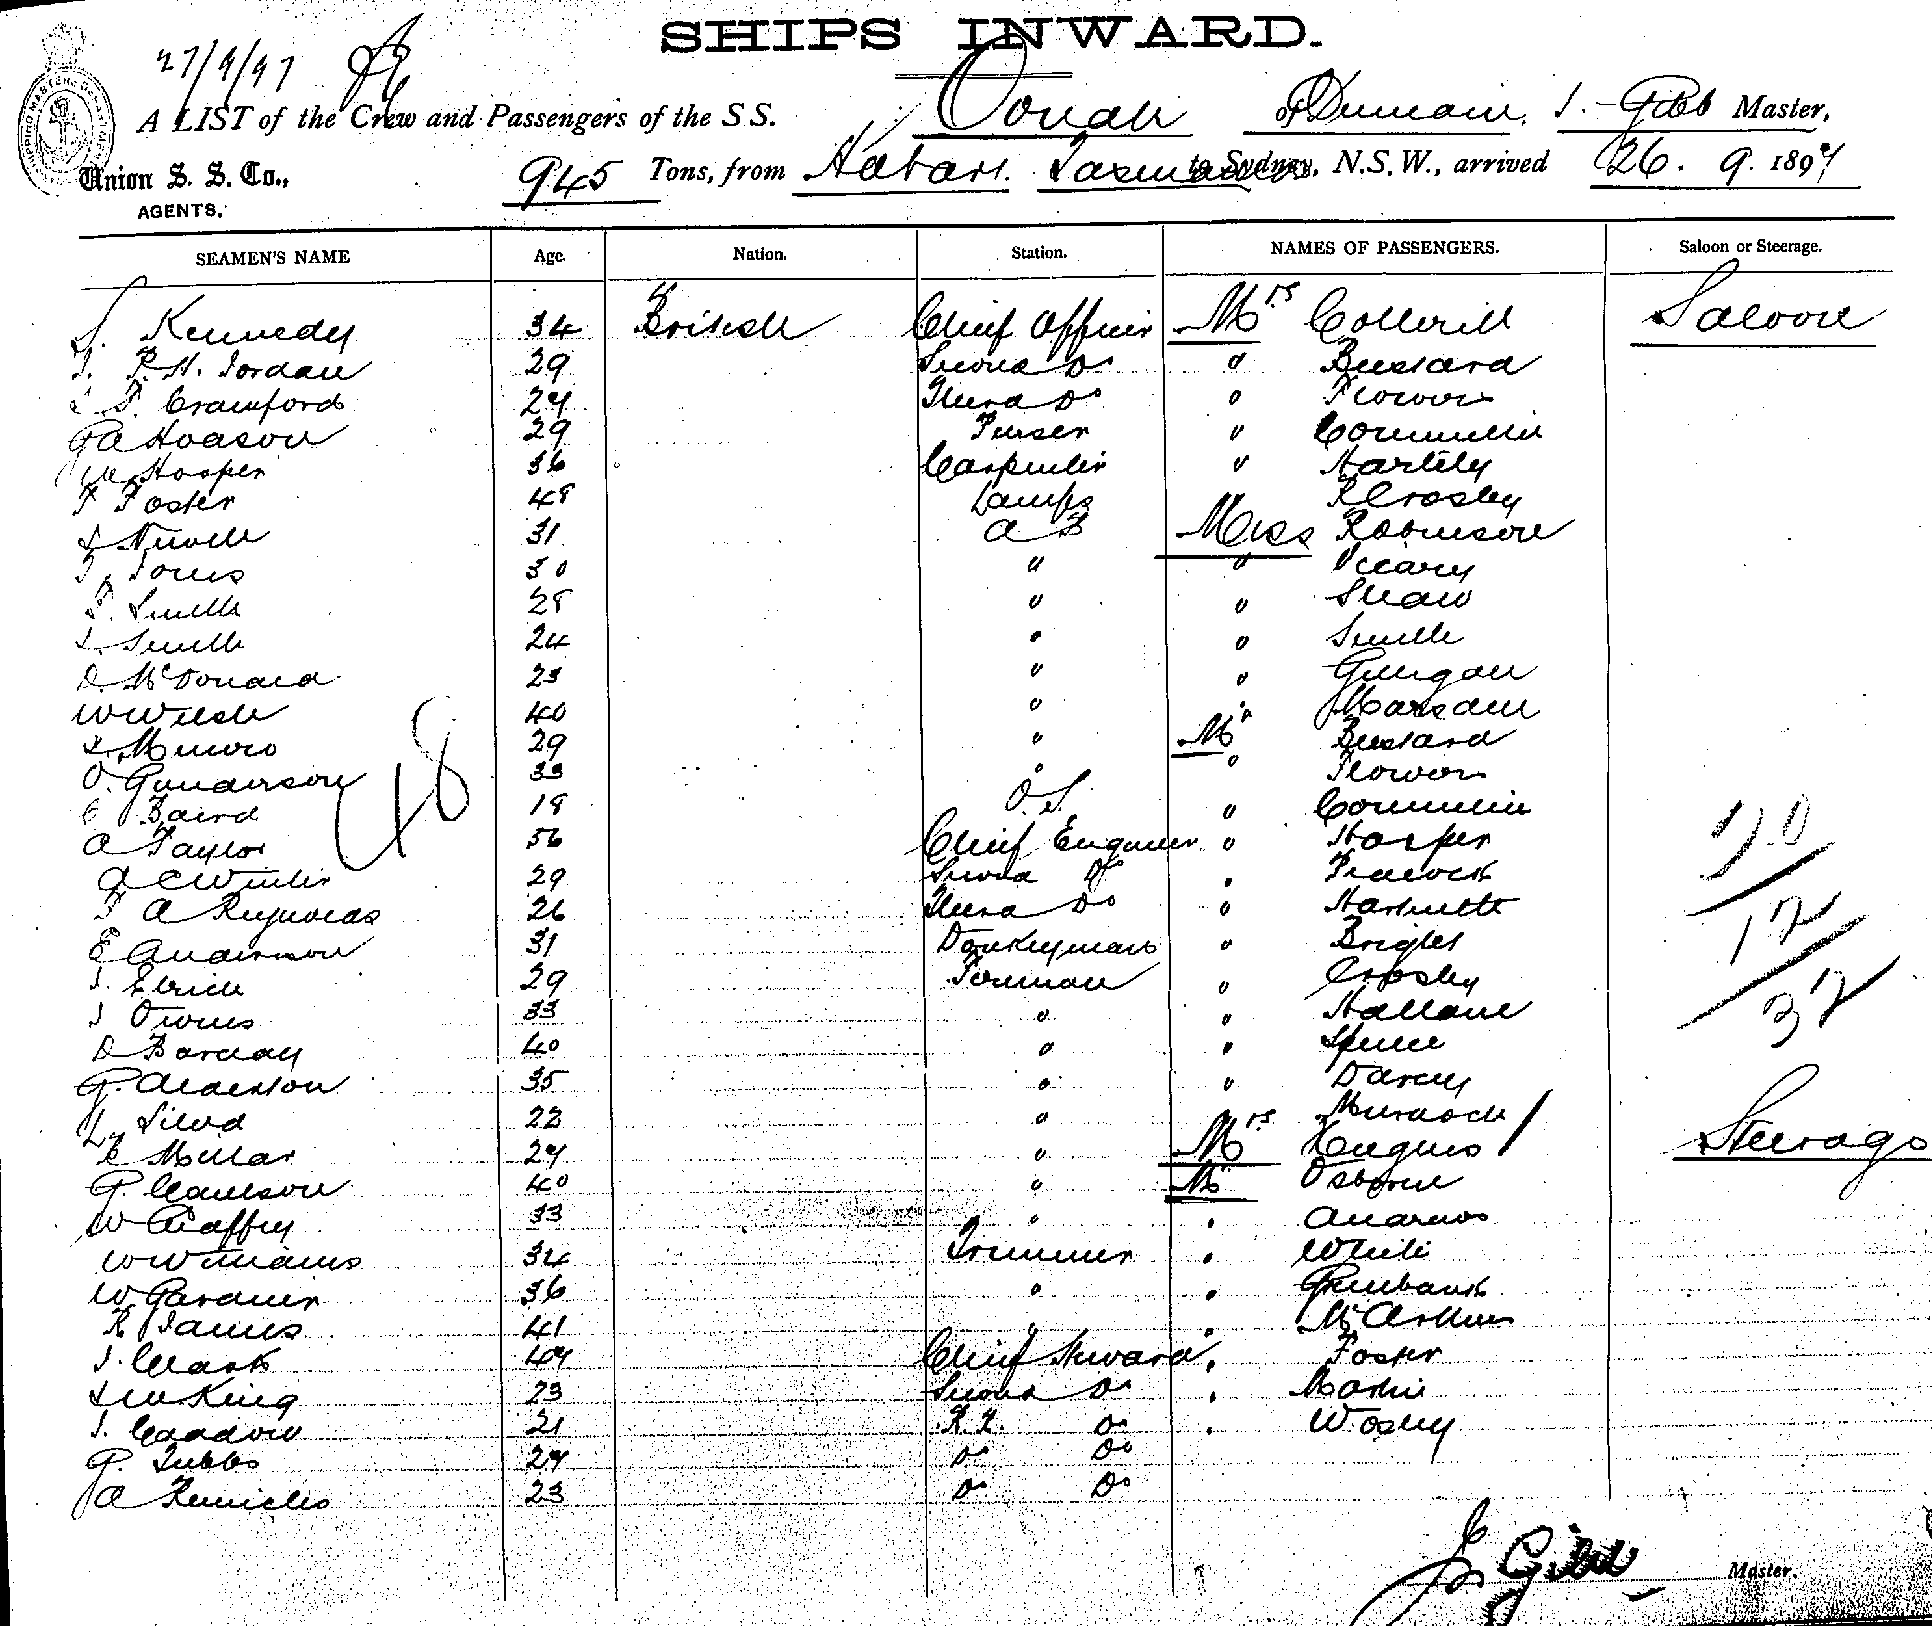 SHIPS INWARD.
27/9/97
A LIST of the Crew and Passengers of the S S. Oonah of Dunedin, J. Gibb Master,
Union S. S. Co., 945 Tons, from Hobart. Tasmania to Sydney, N.S.W., arrived 26. 9. 1897
AGENTS.
SEAMEN'S NAME Age. Nation. Station. NAMES OF PASSENGERS. Saloon or Steerage.
S. Kennedy 34 British Chief Officer Mrs Cotterill Saloon
J. P. H. Jordan 29 Second Do " Bussard
D. Crawford 27 Third Do " Flower
G A Hodson 29 Purser "
W Hooper 36 Carpenter " Hartley
F Foster 48 Lamps R Crosby
31 A B Miss Robinson
J. Jones 30 " " Vicary
P. Smith 28 " " Shaw
J. Smith 24 " " Smith
D. McDonald 23 " "
W Welsh 40 " "
J. Munro 29 " Mr Bussard
O. Gunderson 33 " " Flower
C Baird 18 O.S. "
A Taylor 56 Chief Engineer " Harper
A C Winter 29 Second Do " Peacock
F A Reynolds 26 Third Do "
E Anderson 31 Donkeyman " Bright
29 Fireman " Crosby
J Owens 33 " " Hallam
D Barclay 40 " " Spence
G. Alderson 35 " " Darcy
22 " Murdoch
Millar 27 " Mrs Steerage
40 " Mr Osborne
W 33 " " Andrews
W Williams 34 Trimmer " White
W Gardner 36 " " Greenbank
R James 41 " " McArthur
J. Clark 47 Chief Steward " Foster
J W King 23 Second Do " Martin
J. 21 F.R. Do "
G. Tubbs 27 Do Do
A 23 Do Do
48
20
12
32
J. Gibb Master.